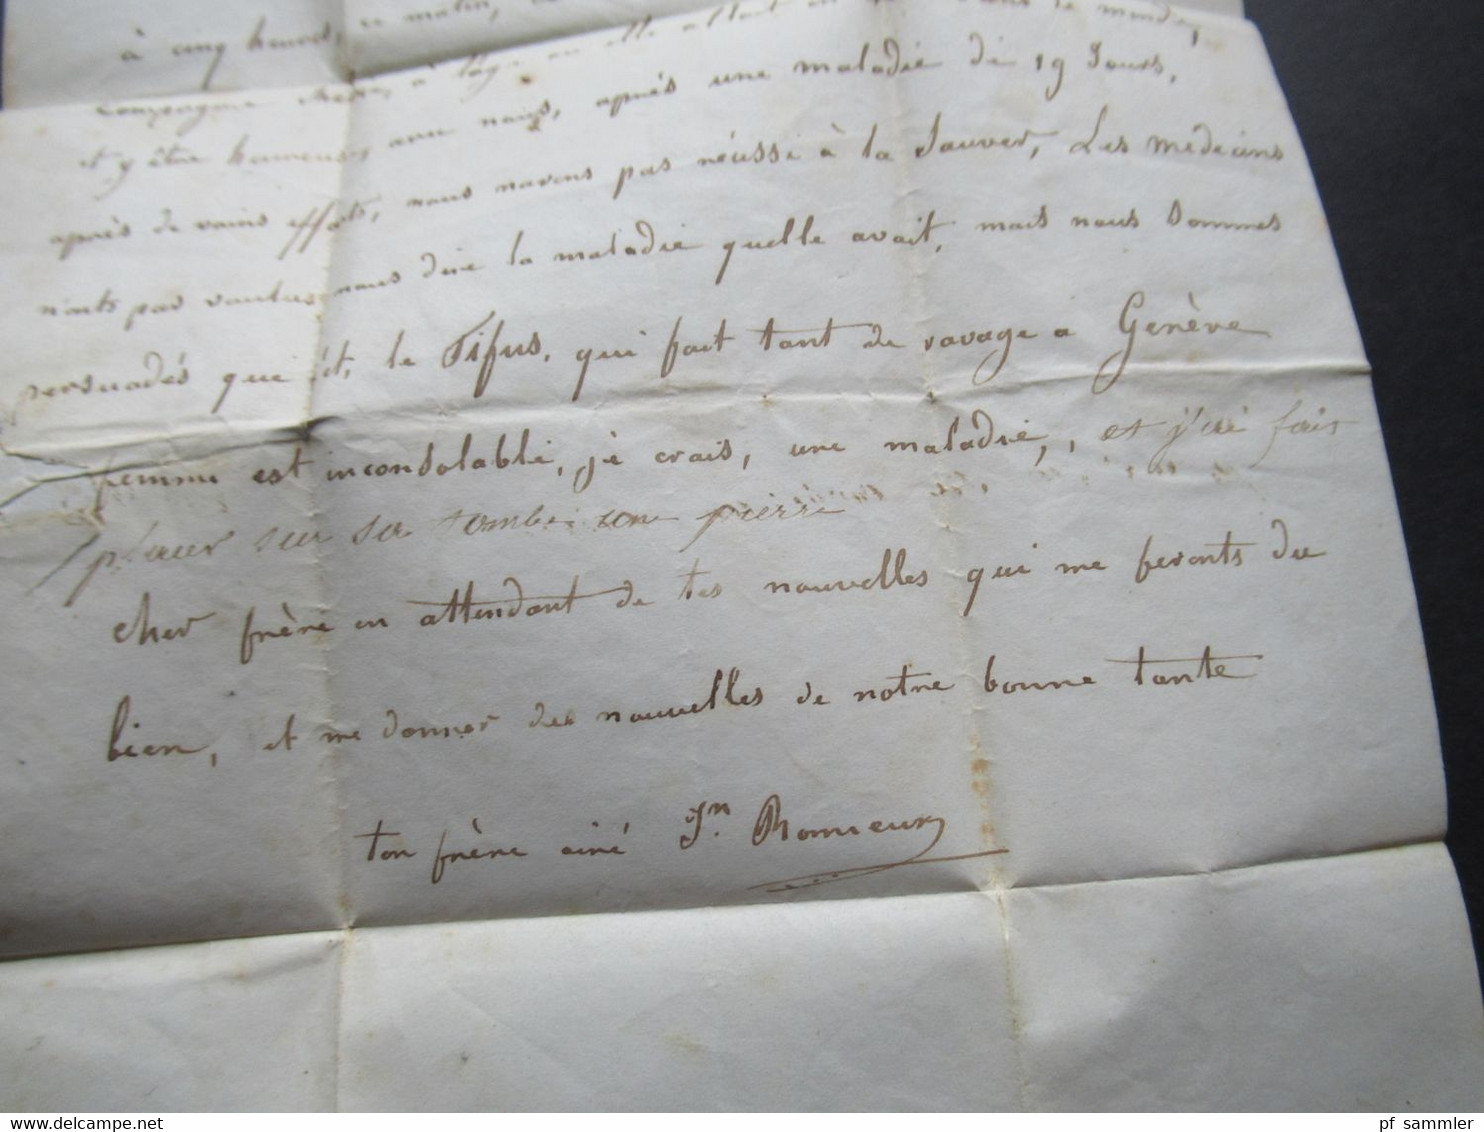 à cinq heures, ce matin,
compagne à l'age ou elle allait dans le monde,
et y être heureuse, ann nairs, après une maladie de 19 Jours,
après de vains effots, nous navons pas réussi à la Sauver, Les medecins
n'onts pas voulus nous dire la maladie quelle avait, mais nous Sommes
persuadés que ét, le Tifus, qui fait tant de ravage a Genève
femme est incondolable, je crais, une maladie, et j'ai fait
placer sur sa tombe une pierre
cher frère en attendant de tes nouvelles qui me feronts du
bien, et me donner des nouvelles de notre bonne tante
ton frère ainé Jn. Romieux
pf sammler